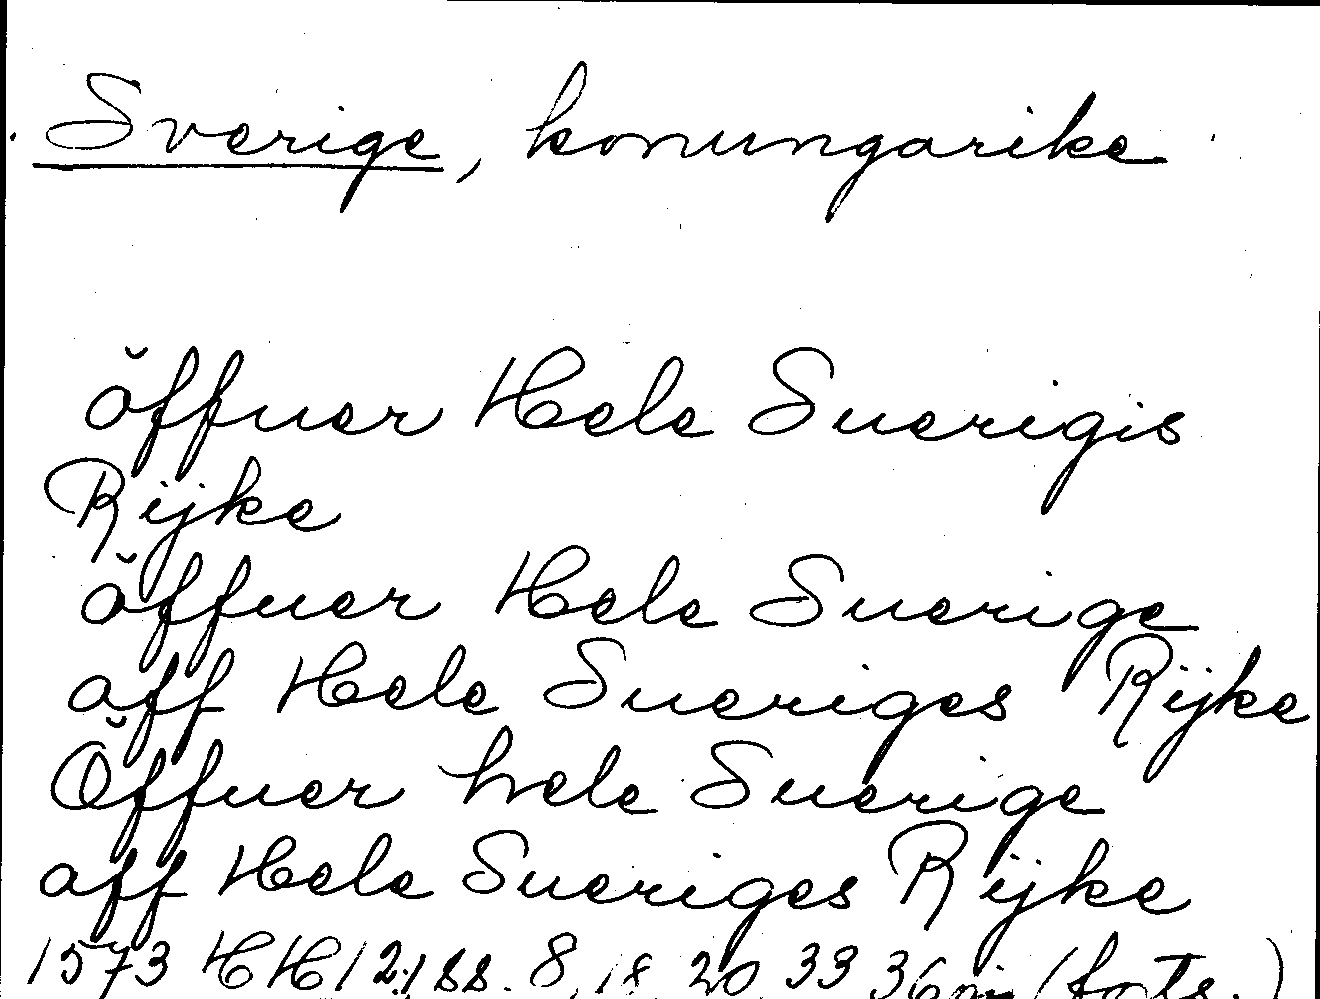 Sverige, konungarike
öffuer Hele Suerigis
Rijke
öffuer Hele Suerige
aff Hele Sueriges Rijke
Öffuer hele Suerige
aff Hele Sueriges Rijke
1573 HH 12:1 ss. 8, 18, 20, 33, 36 (forts.)